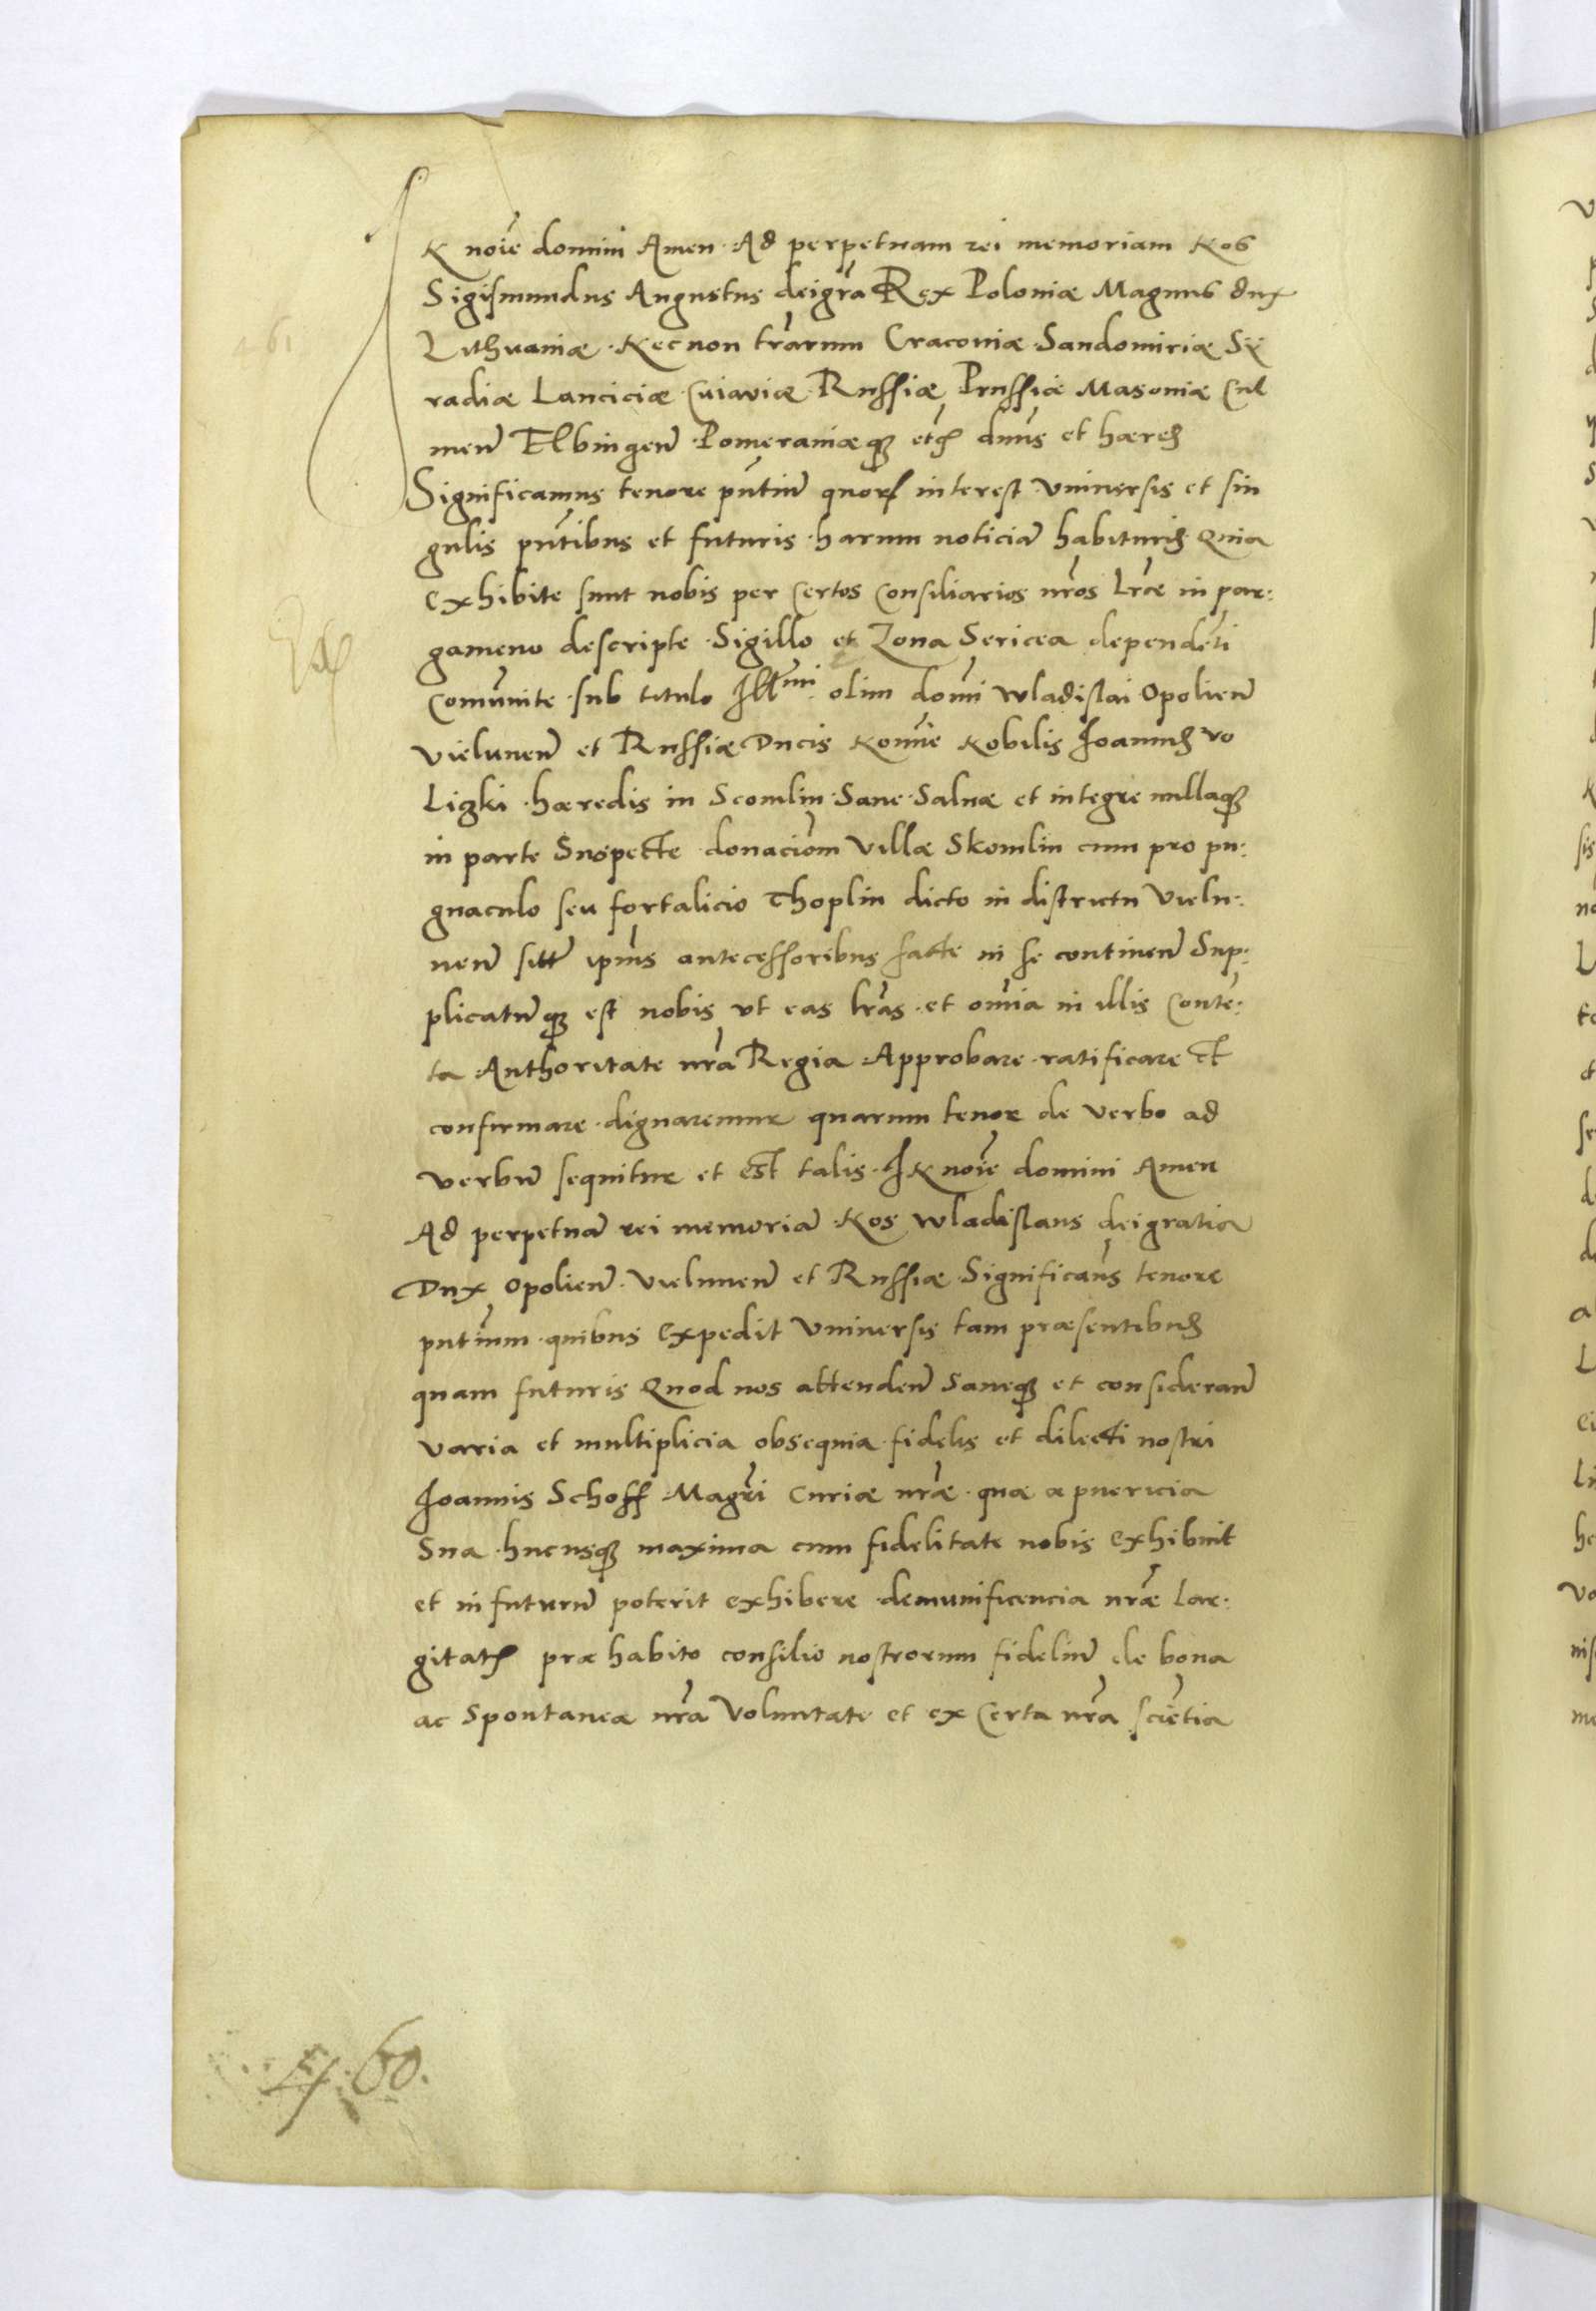 IN noīe domini Amen. Ad perpetuam rei memoriam Nos
Sigismundus Augustus deigrā Rex Poloniæ Magnus dux
Lithuaniæ. Necnon trārum Cracoviæ. Sandomiriæ Sy
radiæ Lanciciæ. Cuiaviæ. Russiæ Prussiæ Masoviæ Cul
meñ Elbingeñ. Pomeraniæqꝫ etc̄ dnūs et hæres
Significamus tenore pn̄tiū quorꝫ interest universis et sin
gulis pn̄tibus et futuris. harum noticiā habituris. Quia
Exhibite sunt nobis per Certos Consiliarios nr̄os lrāe in par:
gameno descripte. Sigillo et Zona Sericea dependēti
Com̄unite. sub titulo Illmi. olim domī Wladislai Opolieñ
Vieluneñ et Russiæ Ducis Nomīe Nobilis Ioannis Wo
Liczki. hæredis in Scomlin. Sane. Salvæ et integre nullaqꝫ
in parte Suspecte donaciom Villæ Skomlin cum pro pu:
gnaculo seu fortalicio Thoplin dicto in districtu Vielu:
neñ sitt̄ ipīus antecessoribus facte in se continen̄ Sup:
plicatūqꝫ est nobis ut eas lrās. et om̄ia in illis Contē:
ta. Authoritate nrā Regia. Approbare. ratificare et
confirmare. dignaremur quarum tenor de verbo ad
verbū sequitur et est talis. IN noīe domini Amen
Ad perpetuā rei memoriā. Nos Wladislaus deigratia
Dux Opolieñ. Vieluneñ et Russiæ. Significam̄us tenore
pntīum. quibus Expedit Universis tam præsentibus
quam futuris Quod nos attenden̄ Saneqꝫ et consideran̄
varia et multiplicia obsequia. fidelis et dilecti nostri
Ioannis Schoff. Magr̄i Curiæ nrāe. quæ a puericia
Sua. hucusqꝫ maxima cum fidelitate nobis Exhibuit
et in futurū poterit exhibere. demunificencia nrāe lar:
gitatis præ habito consilio nostrorum fideliū de bona
ac Spontanea nrā Voluntate et ex Certa nrā sciētia
60.